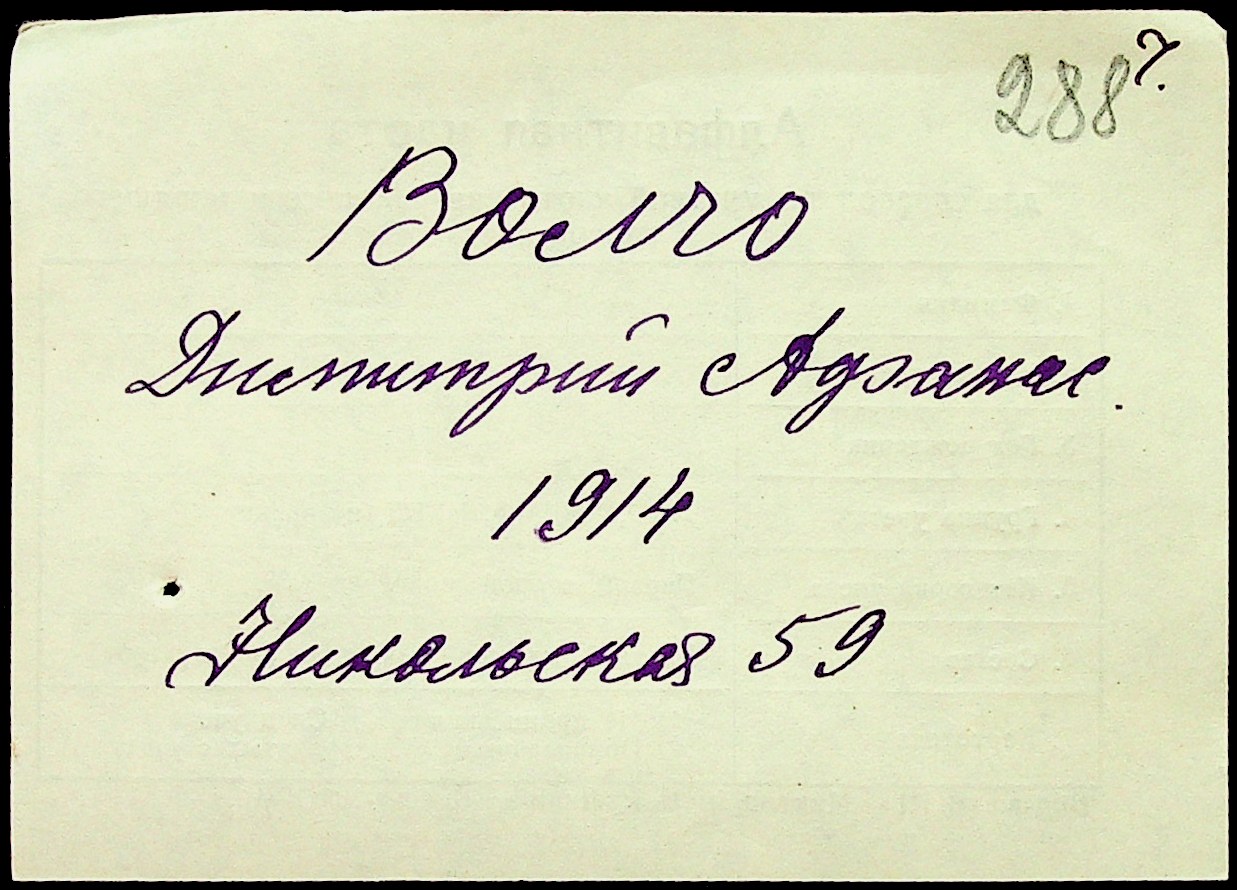 288 7.
Волчо
Димитрий Афанас.
1914
Никольская 59